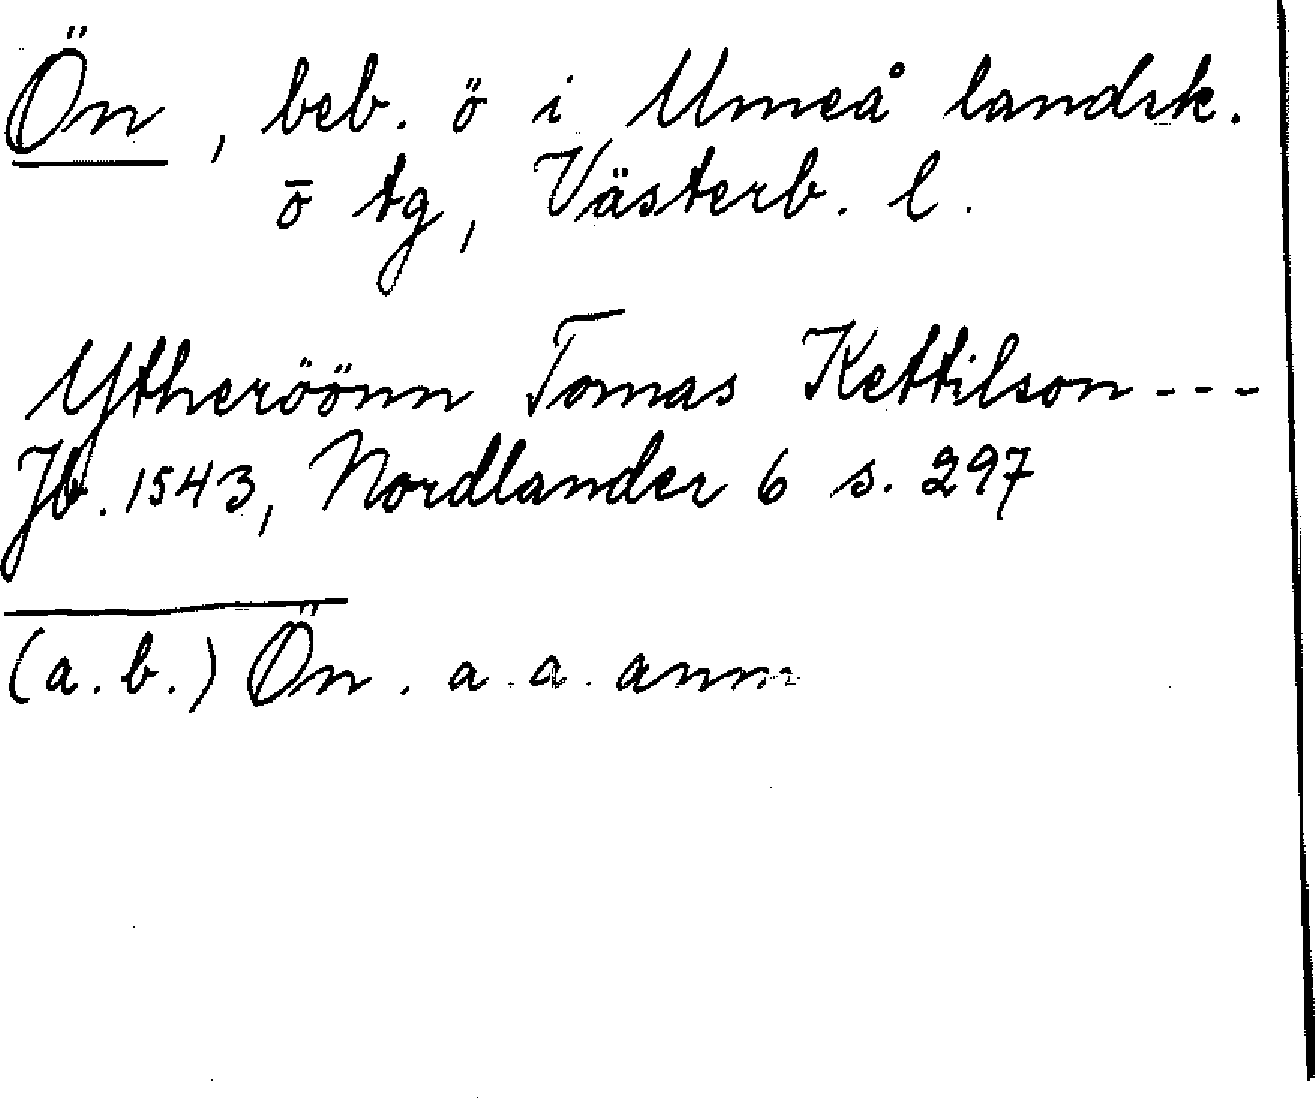 Ön, beb. ö i Umeå landsk.
ō tg, Västerb. l.
Ytheröönn Tomas Kettilson ---
Jb. 1543, Nordlander 6 s. 297
(a.b.) Ön. a.a. anm